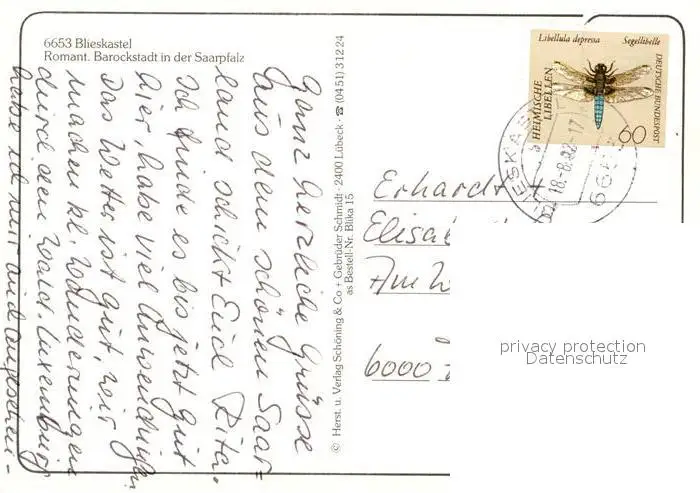 6653 Blieskastel
Romant. Barockstadt in der Saarpfalz
Ganz herzliche Grüsse
aus dem schönen Saar=
land schickt Euch Rita.
Ich finde es bis jetzt gut
hier, habe viel Anwendungen
Das Wetter ist gut, wir
machen kl. Wanderungen
durch den Wald. Luxemburg
habe ich mir auch angesehen-
© Herst. u. Verlag Schöning & Co + Gebrüder Schmidt · 2400 Lübeck · ☎ (04 51) 3 12 24
as Bestell-Nr. Blika 15
Libellula depressa Segellibelle
HEIMISCHE
LIBELLEN
DEUTSCHE BUNDESPOST
60
18.-8.92-17
Erhardt +
Elisab
Am W
6000
privacy protection
Datenschutz